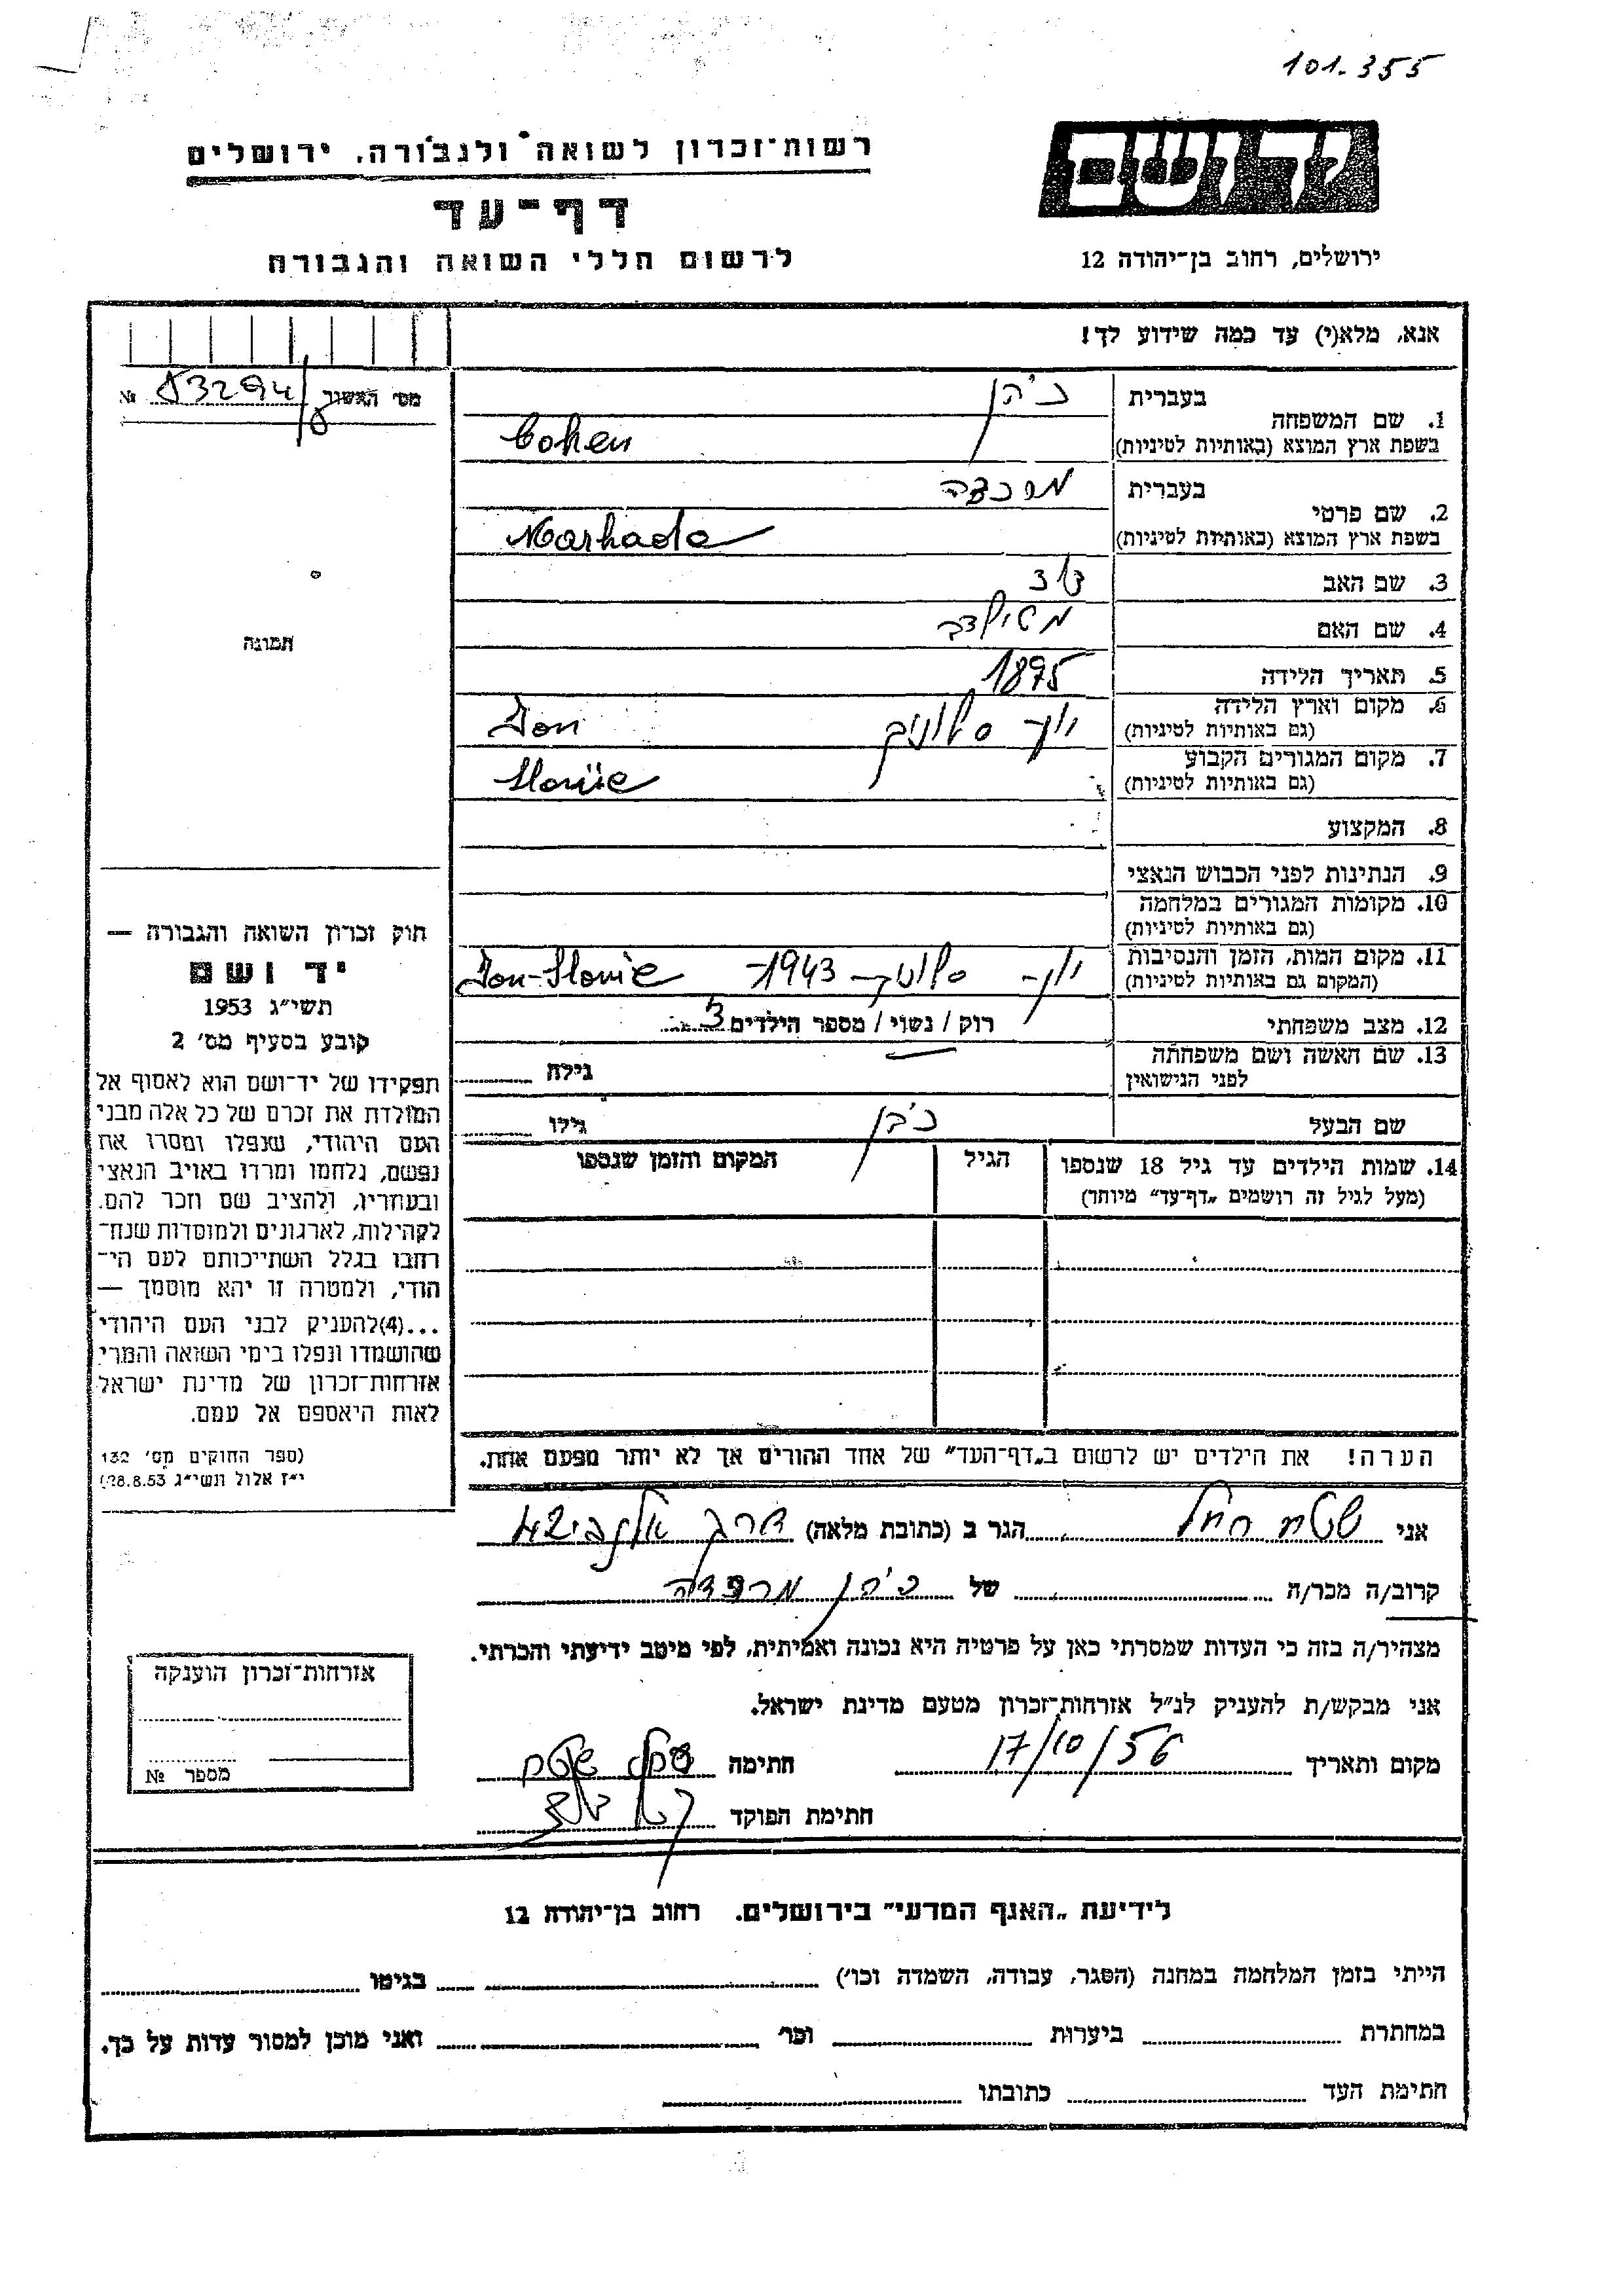 101.355
רשות־זכרון לשואה ולגבורה, ירושלים
דף־עד
לרשום חללי השואה והגבורה
ידושם
ירושלים, רחוב בן־יהודה 12
אנא, מלא(י) עד כמה שידוע לך!
מס׳ האשור № 83294
1. שם המשפחה
בעברית
כהן
בשפת ארץ המוצא (באותיות לטיניות)
Cohen
2. שם פרטי
בעברית
בשפת ארץ המוצא (באותיות לטיניות)
3. שם האב
4. שם האם
5. תאריך הלידה 1895
6. מקום וארץ הלידה
(גם באותיות לטיניות)
7. מקום המגורים הקבוע
(גם באותיות לטיניות)
8. המקצוע
9. הנתינות לפני הכבוש הנאצי
10. מקומות המגורים במלחמה
(גם באותיות לטיניות)
11. מקום המות, הזמן והנסיבות
(המקום גם באותיות לטיניות)
1943
12. מצב משפחתי רוק / נשוי / מספר הילדים 3
13. שם האשה ושם משפחתה
לפני הנישואין
גילה
שם הבעל כהן גילו
14. שמות הילדים עד גיל 18 שנספו
(מעל לגיל זה רושמים „דף־עד״ מיוחד)
הגיל
המקום והזמן שנספו
תמונה
חוק זכרון השואה והגבורה —
יד ושם
תשי״ג 1953
קובע בסעיף מס׳ 2
תפקידו של יד־ושם הוא לאסוף אל
המולדת את זכרם של כל אלה מבני
העם היהודי, שנפלו ומסרו את
נפשם, נלחמו ומרדו באויב הנאצי
ובעוזריו, ולהציב שם וזכר להם.
לקהילות, לארגונים ולמוסדות שנח־
רחבו בגלל השתייכותם לעם הי־
הודי, ולמטרה זו יהא מוסמך —
...(4)להעניק לבני העם היהודי
שהושמדו ונפלו בימי השואה והמרי
אזרחות־זכרון של מדינת ישראל
לאות היאספם אל עמם.
(ספר החוקים מס׳ 132
י״ז אלול תשי״ג 28.8.53)
הערה! את הילדים יש לרשום ב„דף־העד״ של אחד ההורים אך לא יותר מפעם אחת.
אני הגר ב (כתובת מלאה)
קרוב/ה מכר/ה של כהן
מצהיר/ה בזה כי העדות שמסרתי כאן על פרטיה היא נכונה ואמיתית, לפי מיטב ידיעתי והכרתי.
אני מבקש/ת להעניק לנ״ל אזרחות־זכרון מטעם מדינת ישראל.
מקום ותאריך 17/10/56 חתימה
חתימת הפוקד
אזרחות־זכרון הוענקה
מספר №
לידיעת „האגף המדעי״ בירושלים. רחוב בן־יהודה 12
הייתי בזמן המלחמה במחנה (הסגר, עבודה, השמדה וכו׳) בגיטו
במחתרת ביערות וכו׳ ואני מוכן למסור עדות על כך.
חתימת העד כתובתו